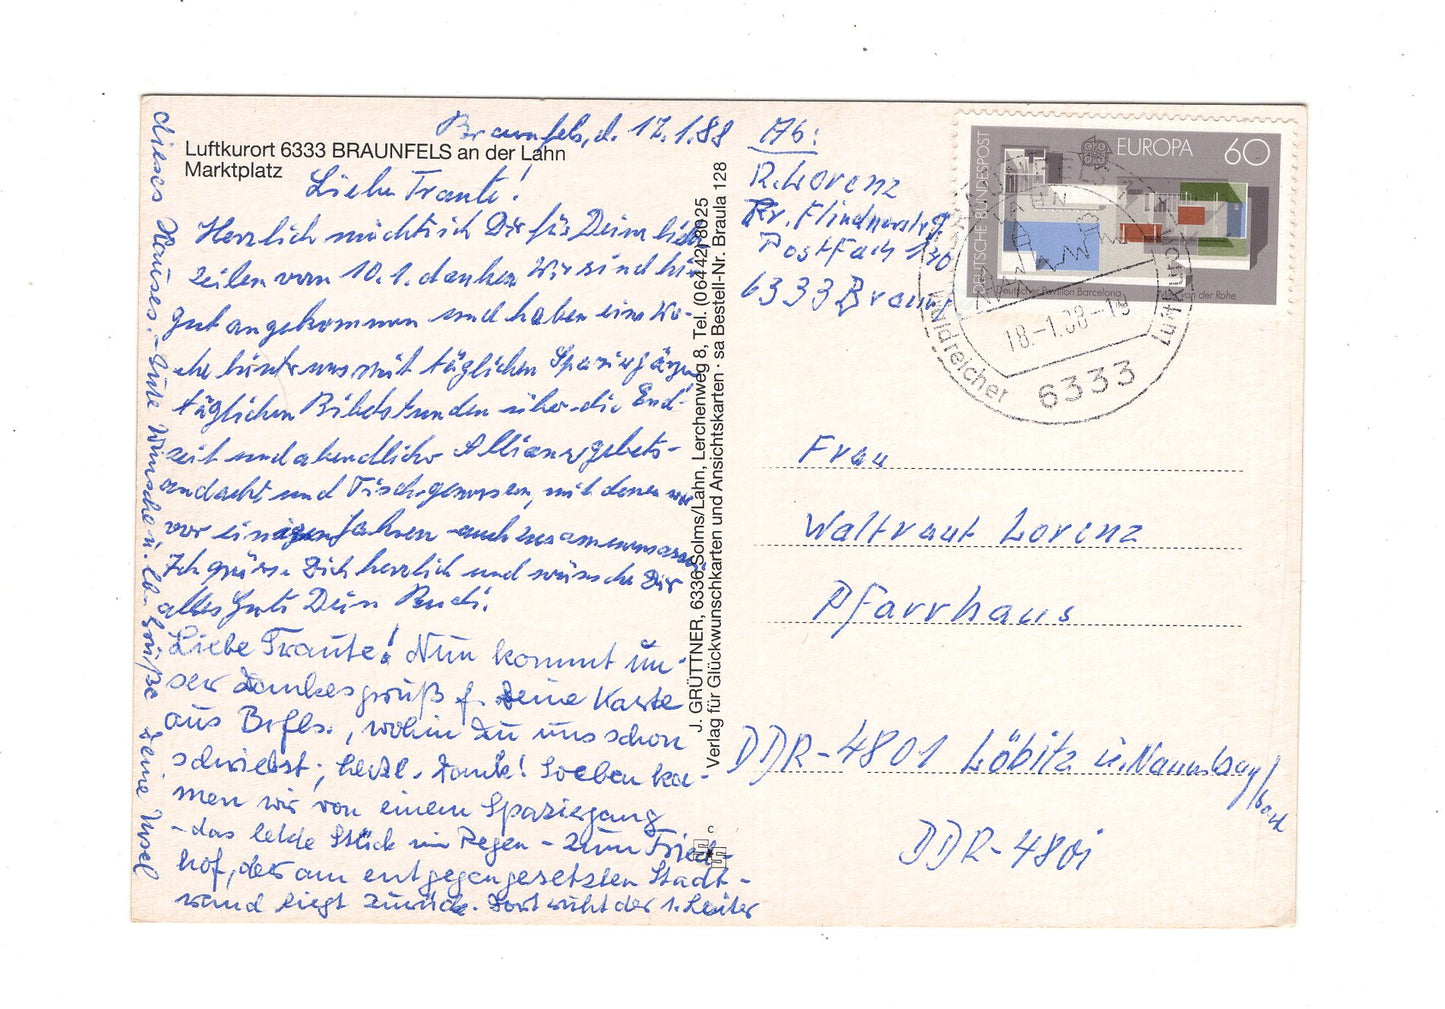 Luftkurort 6333 BRAUNFELS an der Lahn
Marktplatz
Braunfels, d. 17.1.88
Liebe Traute!
Herzlich möchte ich Dir für Deine lieben
Zeilen vom 10.1. danken. Wir sind hier
gut angekommen und haben eine Wo-
che hinter uns mit täglichen Spaziergängen
täglichen Bibelstunden über die End-
zeit und abendlicher Allianzgebets-
andacht und Tischgenossen, mit denen wir
vor einigen Jahren auch zusammensassen.
Ich grüsse Dich herzlich und wünsche Dir
alles Gute Dein Rudi.
Liebe Traute! Nun kommt un-
ser Dankesgruß f. Deine Karte
aus Brfls., wohin Du uns schon
schriebst; herzl. Dank! Soeben ka-
men wir von einem Spaziergang
-das letzte Stück im Regen - zum Fried-
hof, der am entgegengesetzten Stadt-
rand liegt zurück. Dort ruht der 1. Leiter
dieses Hauses. - Gute Wünsche u. lb. Grüße Deine Ursel
J. GRÜTTNER, 6336 Solms/Lahn, Lerchenweg 8, Tel. (06442) 8025
Verlag für Glückwunschkarten und Ansichtskarten · sa Bestell-Nr. Braula 128
Ab:
R. Lorenz
Fr. Fliednerstr. 9
Postfach 140
6333 Braunf
DEUTSCHE BUNDESPOST
EUROPA 60
Deutscher Pavillon Barcelona
van der Rohe
18.-1.88-19
Waldreicher
Luftkurort
6333
Frau
Waltraut Lorenz
Pfarrhaus
DDR-4801 Löbitz ü. Naumburg/
DDR-4801